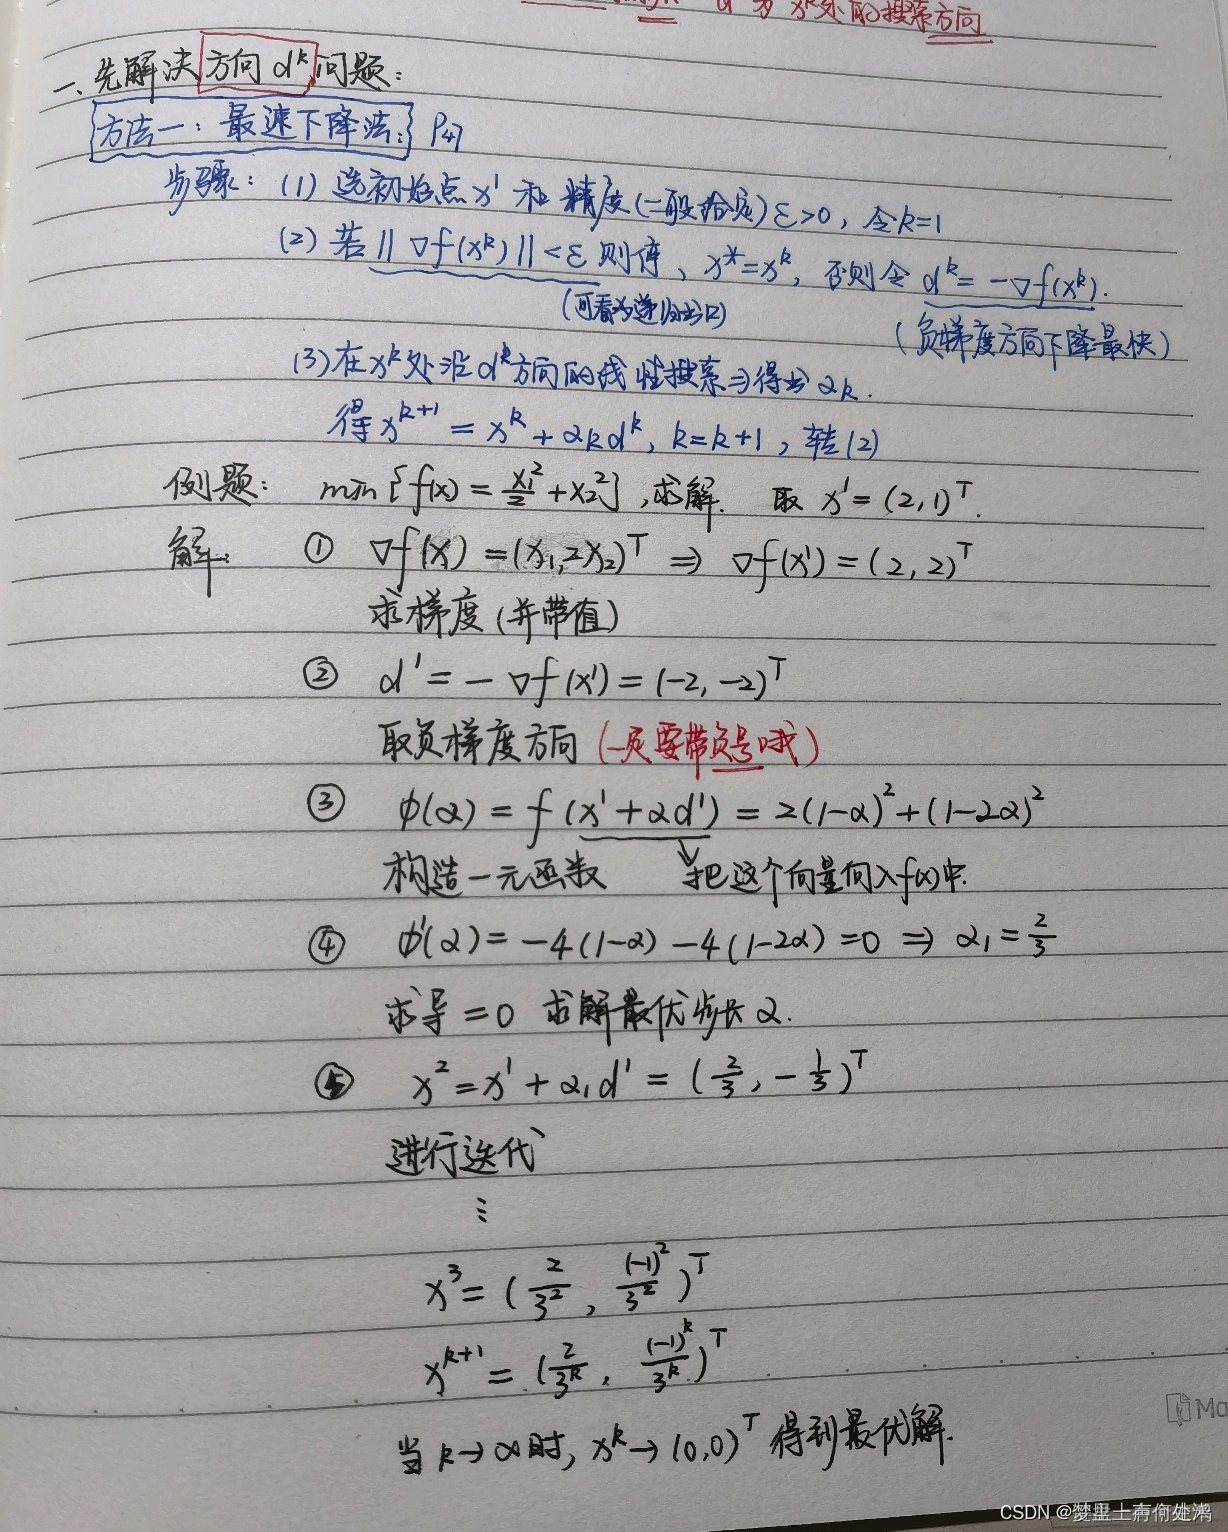 d 为 x^k处的搜索方向
一、先解决方向 d^k 问题：
方法一：最速下降法： P47
步骤：(1) 选初始点 x^1 和 精度(一般给定) ε>0，令k=1
(2) 若 ||∇f(x^k)||<ε 则停、x*=x^k，否则令 d^k=-∇f(x^k).
(可看为递归出口)
(负梯度方向下降最快)
(3)在x^k处沿d^k方向的线性搜索⇒得出α_k.
得 x^{k+1} = x^k + α_k d^k, k=k+1，转(2)
例题： min{f(x) = x_1^2/2 + x_2^2}，求解. 取 x^1=(2,1)^T.
解： ① ∇f(x)=(x_1,2x_2)^T ⇒ ∇f(x^1)=(2,2)^T
求梯度(并带值)
② d^1=-∇f(x^1)=(-2,-2)^T
取负梯度方向(一定要带负号哦)
③ φ(α) = f(x^1+αd^1) = 2(1-α)^2+(1-2α)^2
构造一元函数 把这个向量向入f(x)中.
④ φ'(α)=-4(1-α)-4(1-2α)=0 ⇒ α_1=2/3
求导=0 求解最优步长α.
⑤ x^2=x^1+α_1d^1=(2/3,-1/3)^T
进行迭代
⋮
x^3=(2/3^2, (-1)^2/3^2)^T
x^{k+1}=(2/3^k, (-1)^k/3^k)^T
当k→∞时, x^k→(0,0)^T 得到最优解.
Ma
CSDN @